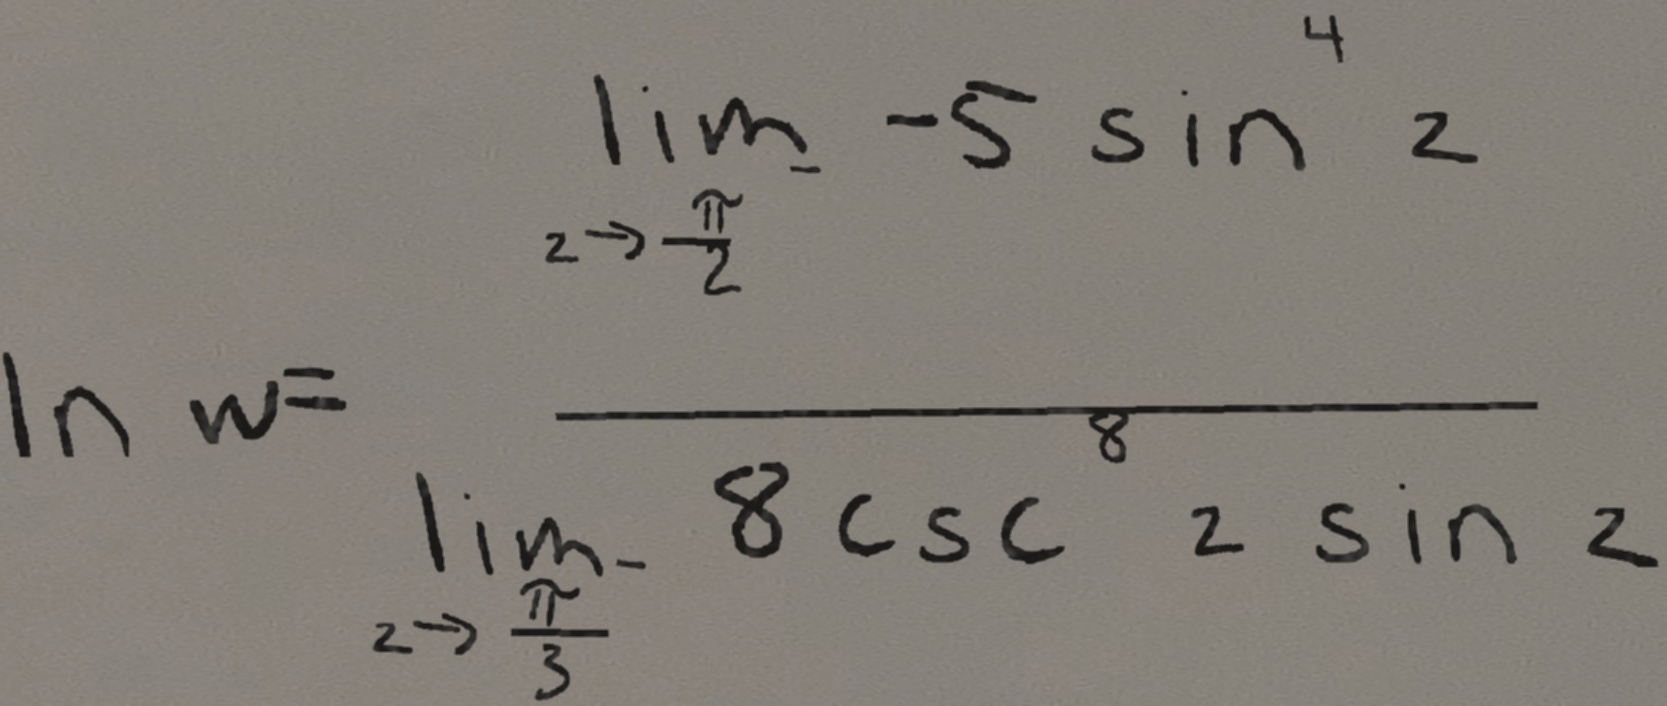 \ln w = \frac{\lim_{z \to \frac{\pi}{2}^-} -5 \sin^4 z}{\lim_{z \to \frac{\pi}{3}^-} 8 \csc^8 z \sin z}